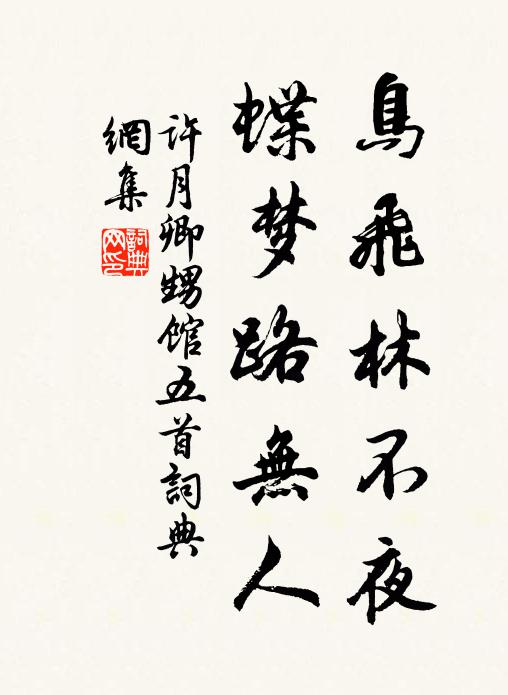 鳥飛林不夜
蝶梦路無人
許月卿甥館五首詞典
網集
詞典
网印